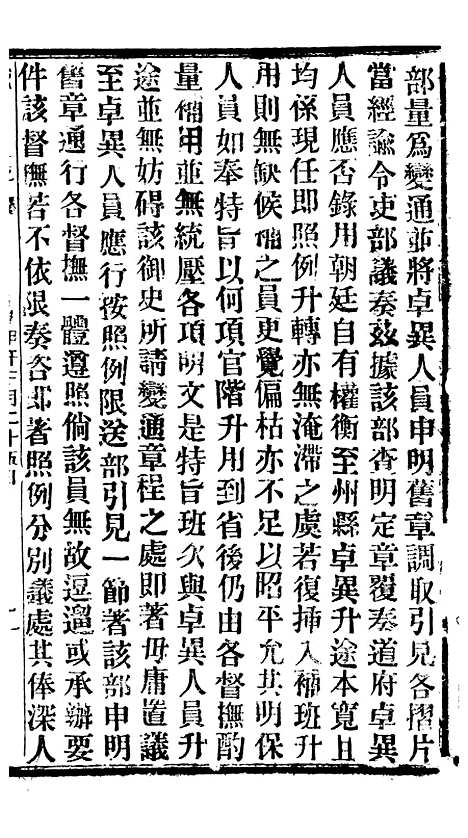 部量爲變通並將卓異人員申明舊章調取引見各摺片
當經諭令吏部議奏茲據該部查明定章覆奏道府卓異
人員應否錄用朝廷自有權衡至州縣卓異升途本寬且
均係現任即照例升轉亦無淹滯之虞若復插入補班升
用則無缺候補之員更覺偏枯亦不足以昭平允其明保
人員如奉特旨以何項官階升用到省後仍由各督撫酌
量補用並無統壓各項明文是特旨班次與卓異人員升
途並無妨碍該御史所請變通章程之處即著毋庸置議
至卓異人員應行按照例限送部引見一節著該部申明
舊章通行各督撫一體遵照倘該員無故逗遛或承辦要
件該督撫若不依限奏咨即著照例分別議處其俸深人